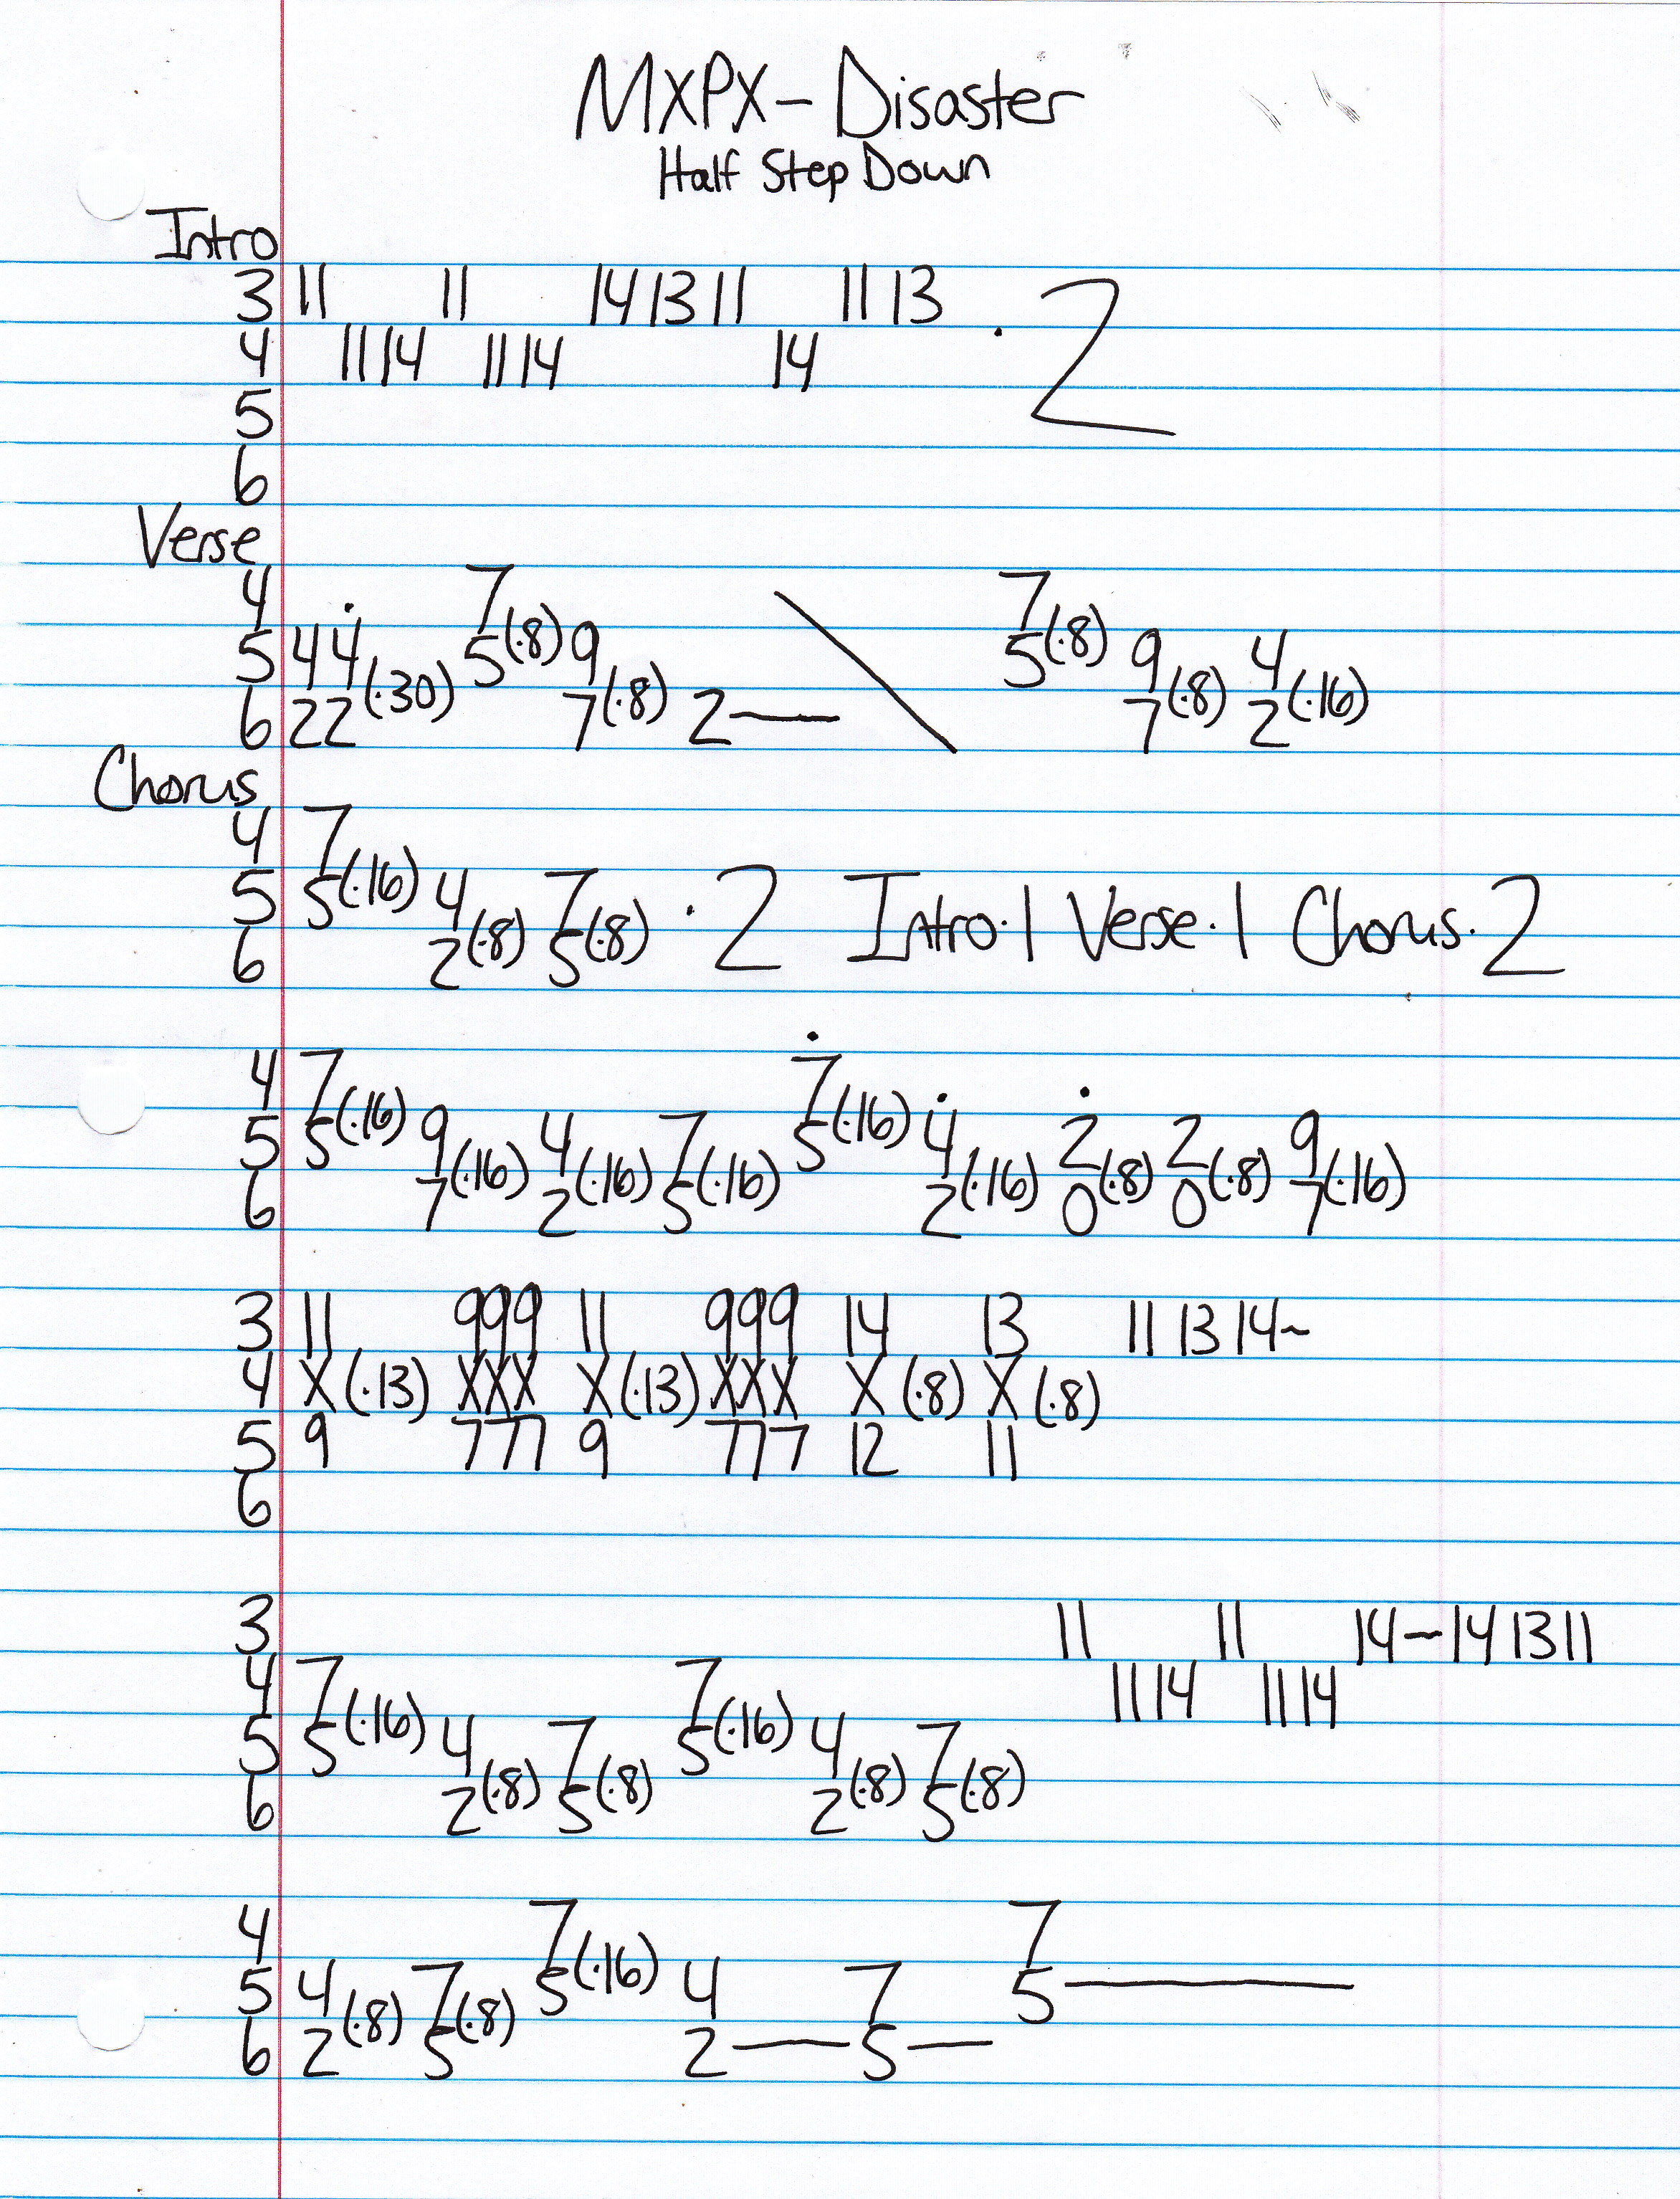 MXPX - Disaster
Half Step Down
Intro
3 11 11 14 13 11 11 13 · 2
4 11 14 11 14 14
5
6
Verse
4 7 7
5 4 4 5(·8) 9 5(·8) 9 4
6 2 2 (·30) 7(·8) 2— 7(·8) 2(·16)
Chorus
4 7
5 5(·16) 4 7 · 2 Intro·1 Verse·1 Chorus·2
6 2(·8) 5(·8)
4 7 7
5 5(·16) 9 4 7 5(·16) 4 2 2 9
6 7(·16) 2(·16) 5(·16) 2(·16) 0(·8) 0(·8) 7(·16)
3 11 999 11 999 14 13 11 13 14~
4 X (·13) XXX X (·13) XXX X (·8) X (·8)
5 9 777 9 777 12 11
6
3 11 11 14~14 13 11
4 7 7 11 14 11 14
5 5(·16) 4 7 5(·16) 4 7
6 2(·8) 5(·8) 2(·8) 5(·8)
4 7 7
5 4 7 5(·16) 4 7 5—
6 2(·8) 5(·8) 2— 5—